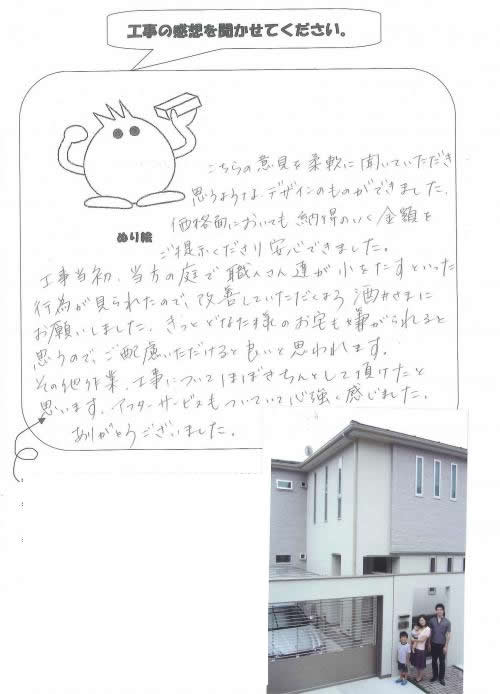 工事の感想を聞かせてください。
こちらの意見を柔軟に聞いていただき
思うようなデザインのものができました。
価格面においても納得のいく金額を
ご提示くださり安心できました。
ぬり絵
工事当初、当方の庭で職人さん達が小をたすといった
行為が見られたので、改善していただくよう酒井さまに
お願いしました。きっとどなた様のお宅も嫌がられると
思うので、ご配慮いただけると良いと思われます。
その他作業、工事についてはほぼきちんとして頂けたと
思います。アフターサービスもついていて心強く感じました。
ありがとうございました。